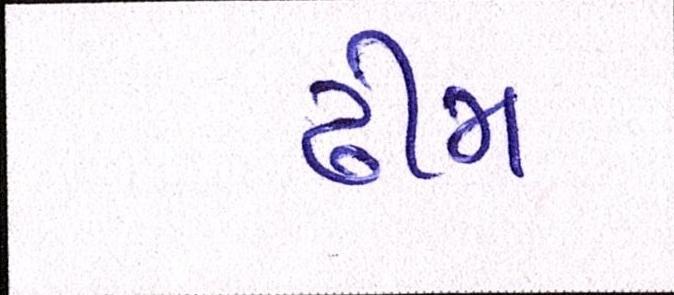 ઢીમ